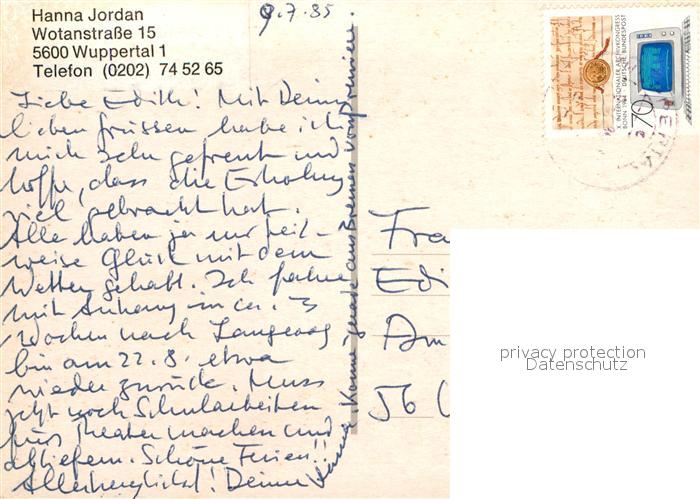 Hanna Jordan
Wotanstraße 15
5600 Wuppertal 1
Telefon (0202) 74 52 65
9.7.85
Liebe Edith! Mit Deinen
lieben Grüssen habe ich
mich sehr gefreut und
hoffe, dass die Erholung
viel gebracht hat.
Alle haben ja nur teil-
weise Glück mit dem
Wetter gehabt. Ich fahre
mit Anhang in ca. 3
Wochen nach Langeoog
bin am 22.8. etwa
wieder zurück. Muss
jetzt noch Schularbeiten
fürs Theater machen und
abliefern. Schöne Ferien!!
Allerherzlichst! Deine Hanna
Komme gerade aus Bremen von Premiere.
X. INTERNATIONALER ARCHIVKONGRESS
BONN 1984 DEUTSCHE BUNDESPOST
70
Fra
Edi
Am
56
privacy protection
Datenschutz